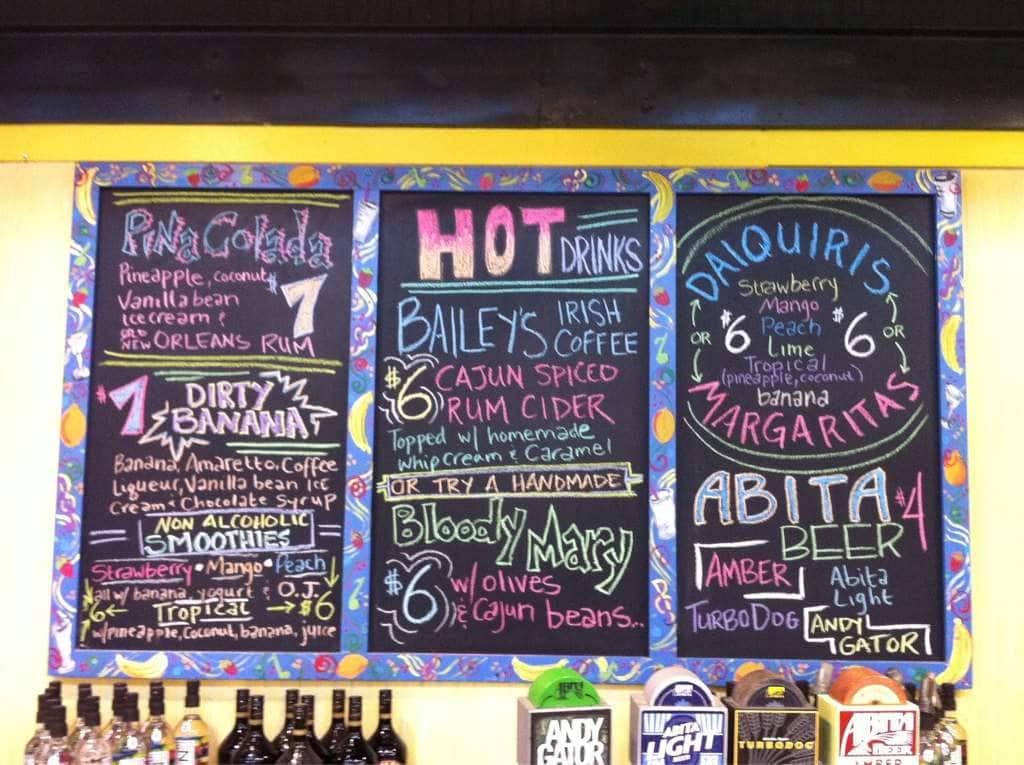 Piña Colada
Pineapple, coconut
Vanilla bean
ice cream &
OLD NEW ORLEANS RUM
$7
$7
DIRTY
BANANA
Banana, Amaretto, Coffee
Liqueur, Vanilla bean Ice
Cream & Chocolate Syrup
NON ALCOHOLIC
SMOOTHIES
Strawberry • Mango • Peach
all w/ banana, yogurt & O.J.
$6 ← Tropical → $6
w/ pineapple, Coconut, banana, juice
HOT
DRINKS
BAILEY'S IRISH
COFFEE
$6 CAJUN SPICED
RUM CIDER
Topped w/ homemade
whip cream & Caramel
OR TRY A HANDMADE
Bloody
Mary
$6 w/ olives
& Cajun beans...
DAIQUIRIS
Strawberry
Mango
Peach
Lime
Tropical
(pineapple, coconut)
banana
OR $6
$6 OR
MARGARITAS
ABITA $4
BEER
AMBER
Abita
Light
TURBODOG
ANDY
GATOR
ANDY
GATOR
ABITA
LIGHT
TURBODOG
ABITA
BEER
AMBER